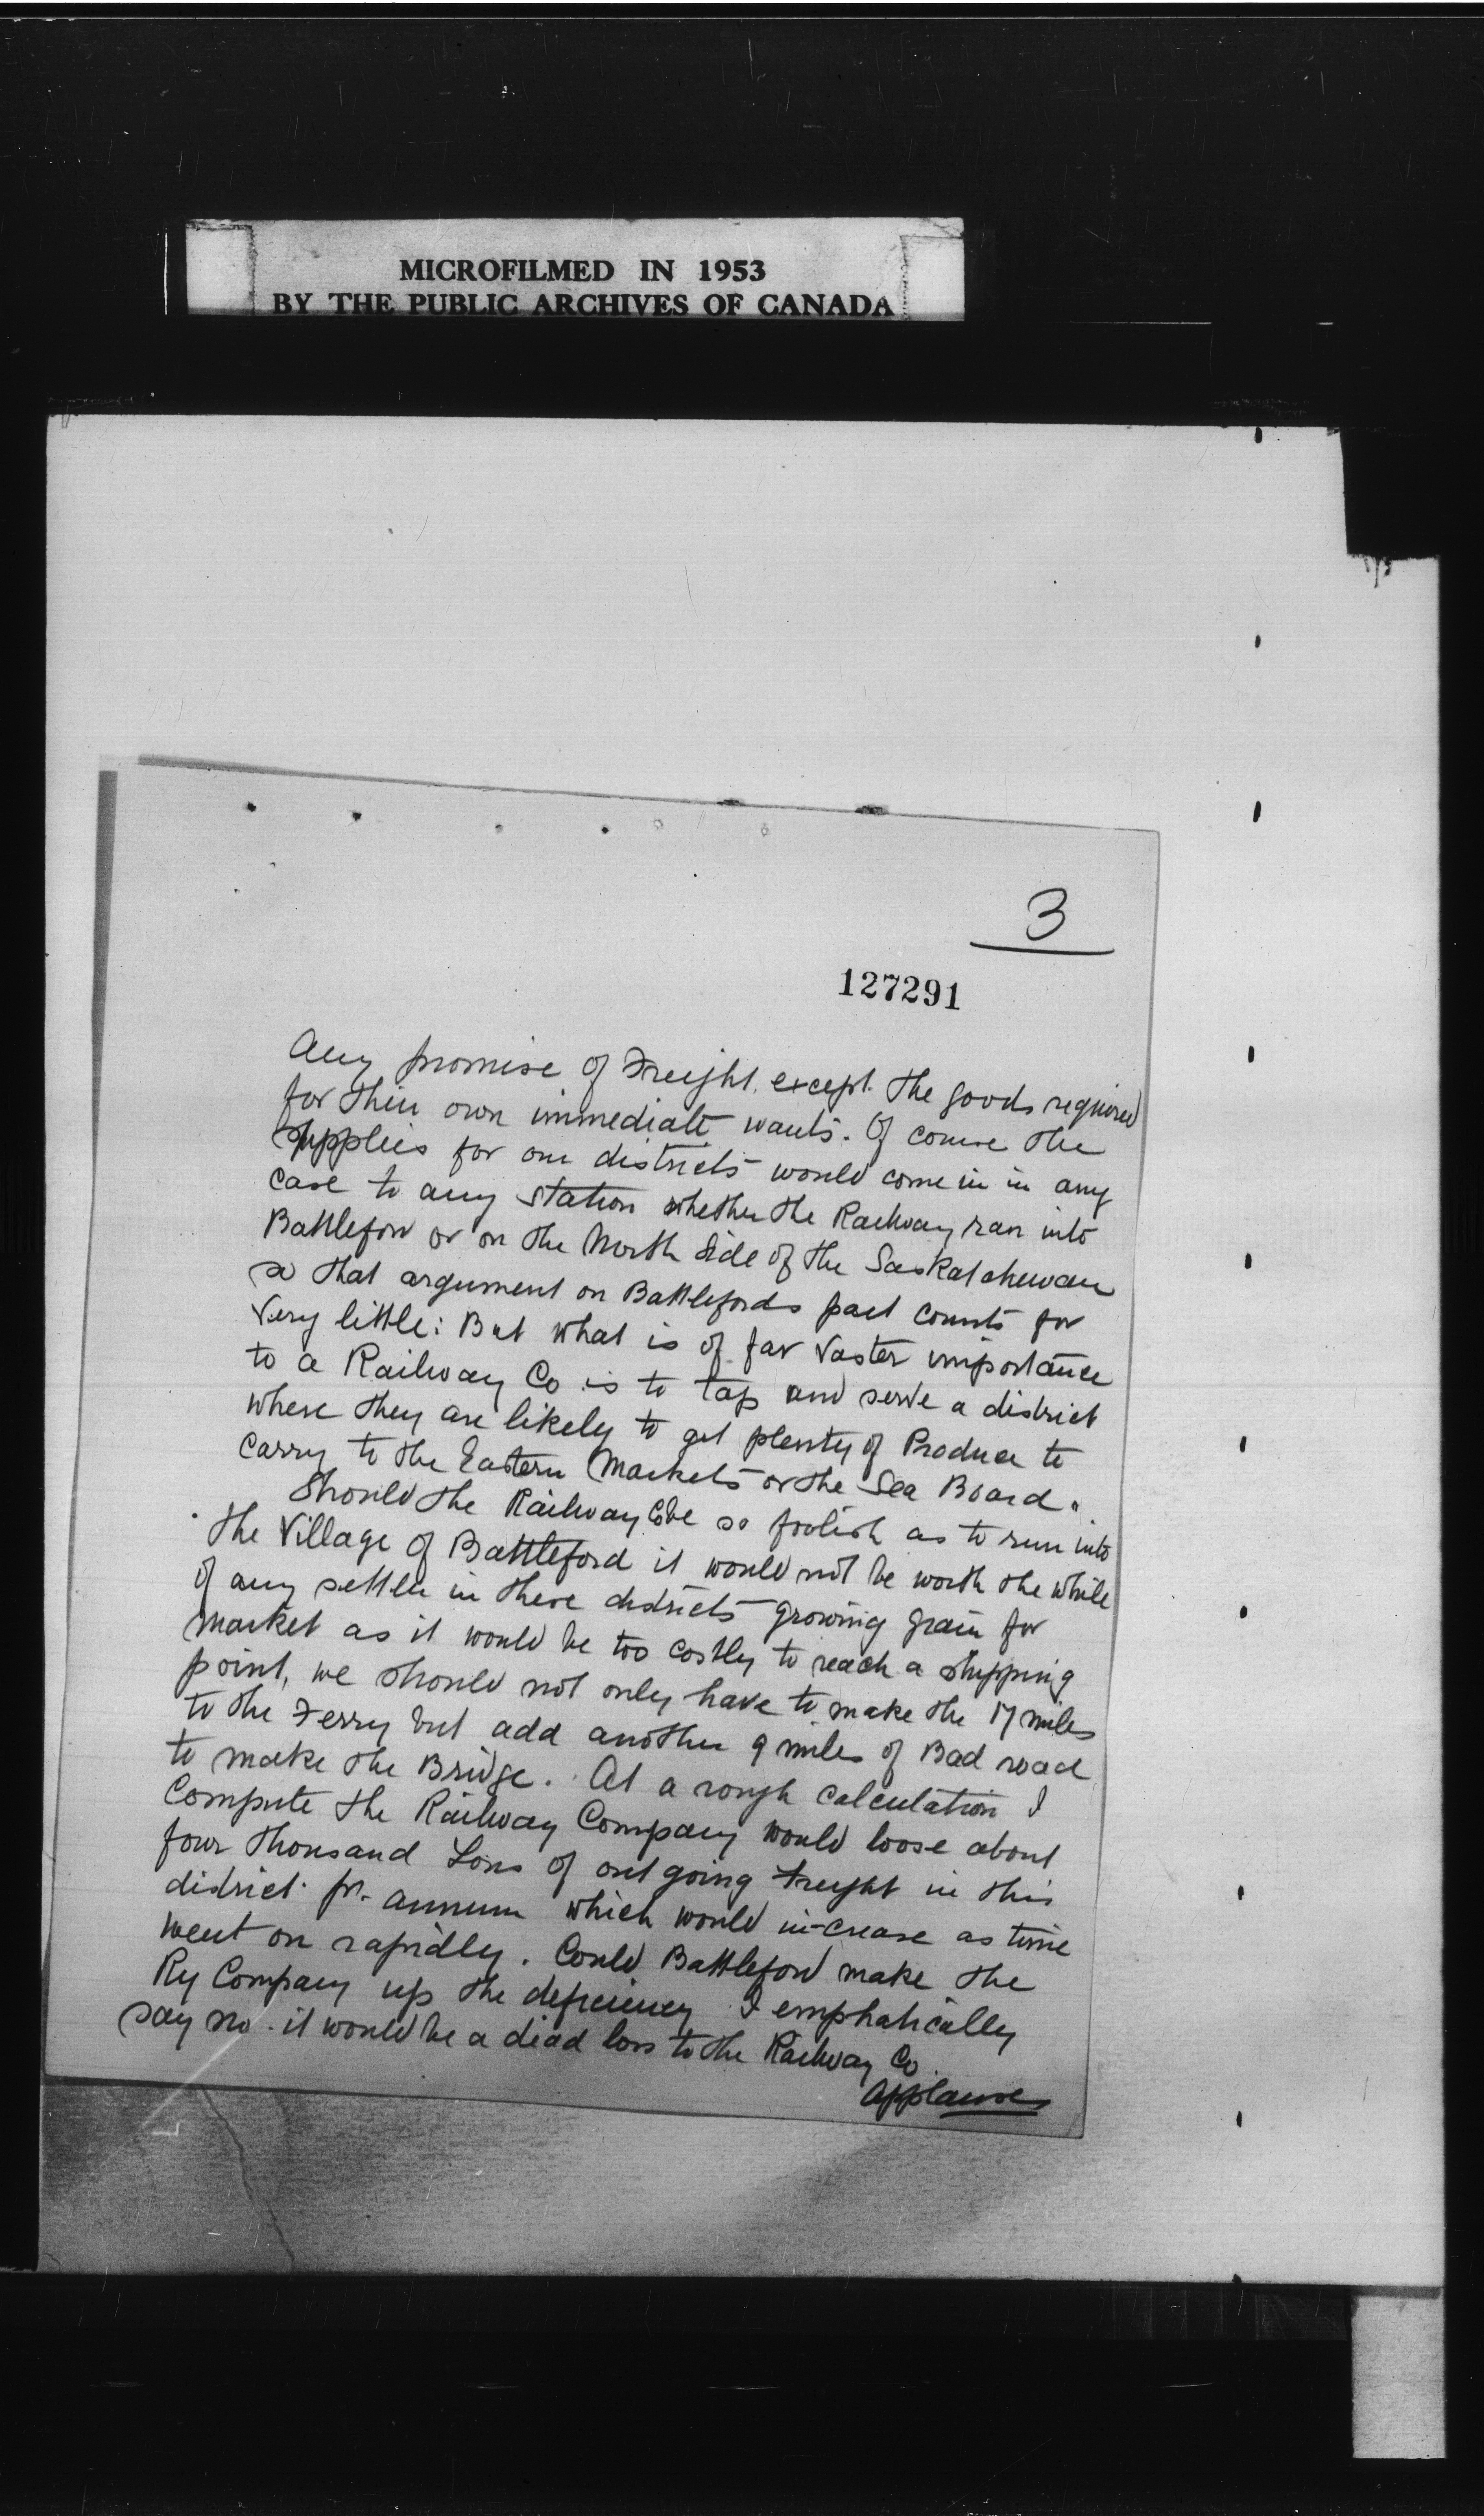 MICROFILMED IN 1953
BY THE PUBLIC ARCHIVES OF CANADA
3
127291
Any promise of Freight except the goods required
for their own immediate wants. Of course the
supplies for our districts would come in in any
case to any station whether the Railway ran into
Battleford or on the North Side of the Saskatchewan
so that argument on Battlefords part counts for
very little: But what is of far vaster importance
to a Railway Co is to tap and serve a district
where they are likely to get plenty of Produce to
carry to the Eastern Markets or the Sea Board.
Should the Railway Co be so foolish as to run into
the Village of Battleford it would not be worth the while
of any settler in these districts growing grain for
market as it would be too costly to reach a shipping
point, we should not only have to make the 17 miles
to the Ferry but add another 9 miles of Bad road
to make the Bridge. At a rough calculation I
compute the Railway Company would loose about
four thousand Tons of out going Freight in this
district pr. annum which would in-crease as time
went on rapidly. Could Battleford make the
Ry Company up the deficiency I emphatically
say no. it would be a dead loss to the Railway Co.
Applause